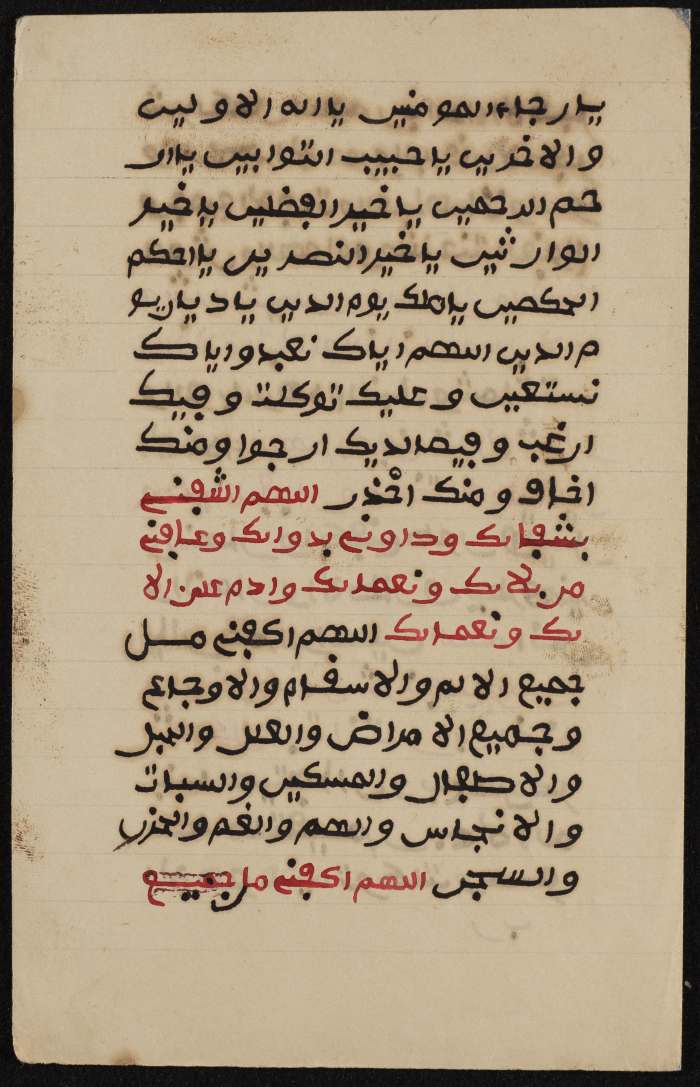 يا رجاء المومنين يا اله الاولين
والاخرين يا حبيب التوابين يا ار
حم الرحمين يا خير الفضلين يا خير
الوارثين يا خير النصرين يا احكم
الحكمين يا ملك يوم الدين يا ديان يو
م الدين اللهم اياك نعبد واياك
نستعين وعليك توكلت وفيك
ارغب وفيما لديك ارجوا ومنك
اخاف ومنك احذر اللهم اشفني
بشفايك وداوني بدوايك وعافني
من بلايك ونعمايك وادم علي الا
يك ونعمايك اللهم اكفني مل
جميع الالم والاسقام والاوجاع
وجميع الامراض والعلل
والانجاس والهم والغم والحزن
والسحر اللهم اكفني من جميع